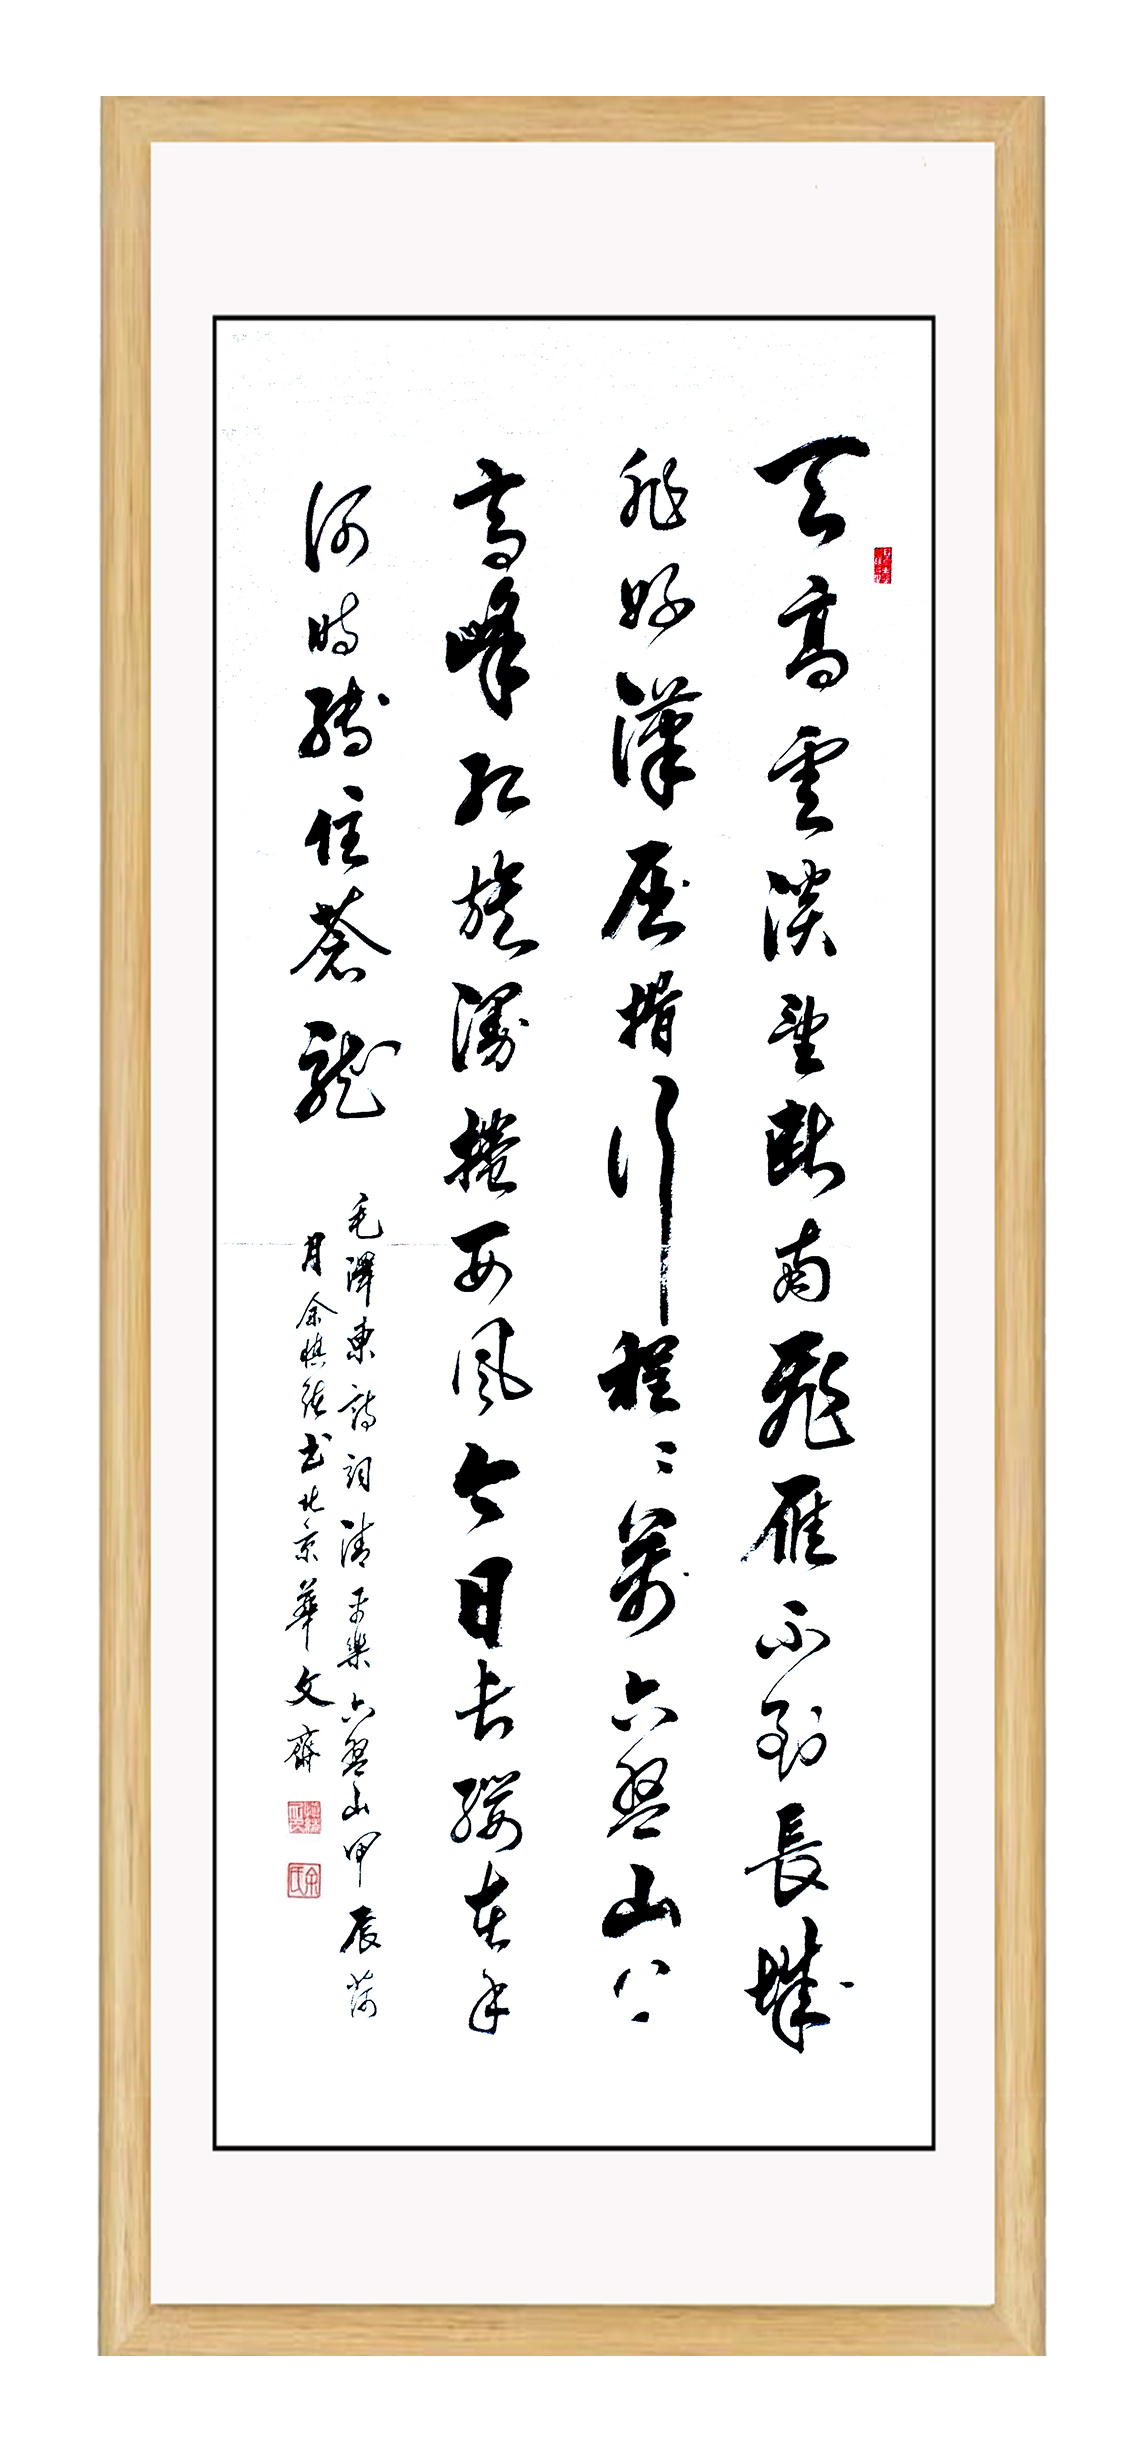 天高雲淡望斷南飛雁不到長城
非好漢屈指行程二萬六盤山上
高峰紅旗漫捲西風今日长纓在手
何時縛住蒼龍
毛澤東詩詞清平樂六盤山甲辰荷
月余慎书北京華文齋
余氏